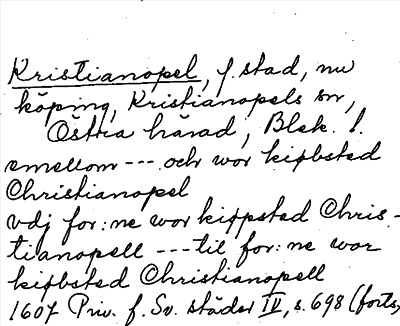 Kristianopel, f. stad, nu
köping, Kristianopels sn,
Östra härad, Blek. l.
emellom --- och wor kiøbsted
Christianopel
vdj for:ne wor kiøpsted Chris-
tianopell --- til for:ne wor
kiøbsted Christianopell
1607 Priv. f. Sv. städer IV, s. 698 (forts.